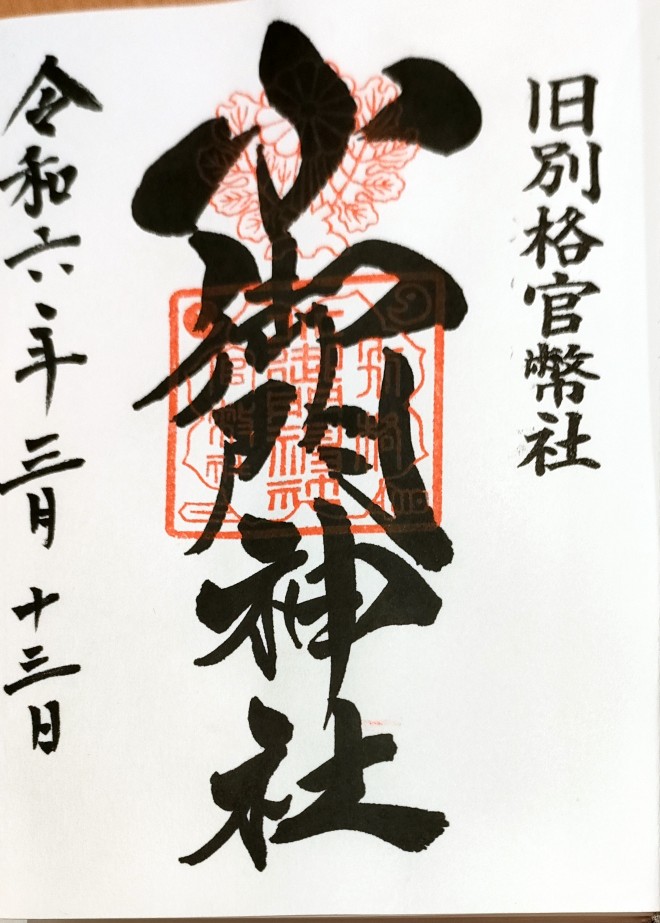 旧別格官幣社
小御門神社
令和六年三月十三日
別格
小御門神社
官幣社